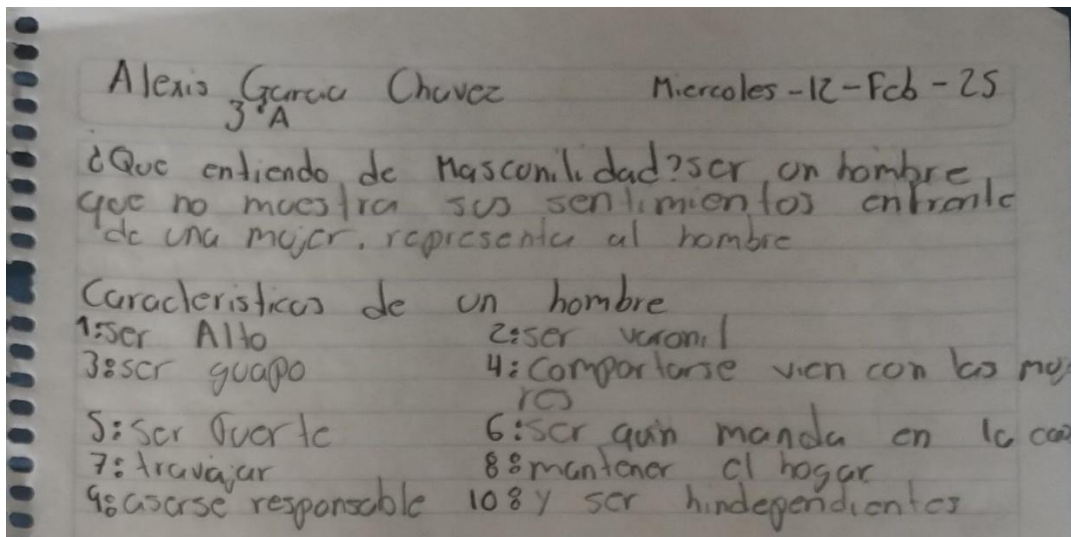 Alexis Garcia Chavez Miercoles-12-Feb-25
3°A
¿Que entiendo de Masconilidad? ser un hombre
que no muestra sus sentimientos enfrente
de una mujer. representa al hombre
Caracteristicas de un hombre
1:ser Alto 2:ser varonil
3:ser guapo 4:Comportarse vien con las muj
res
5:ser fuerte 6:ser quin manda en la cas
7:travajar 8:mantener el hogar
9:aserse responsable 10:y ser hindependientes